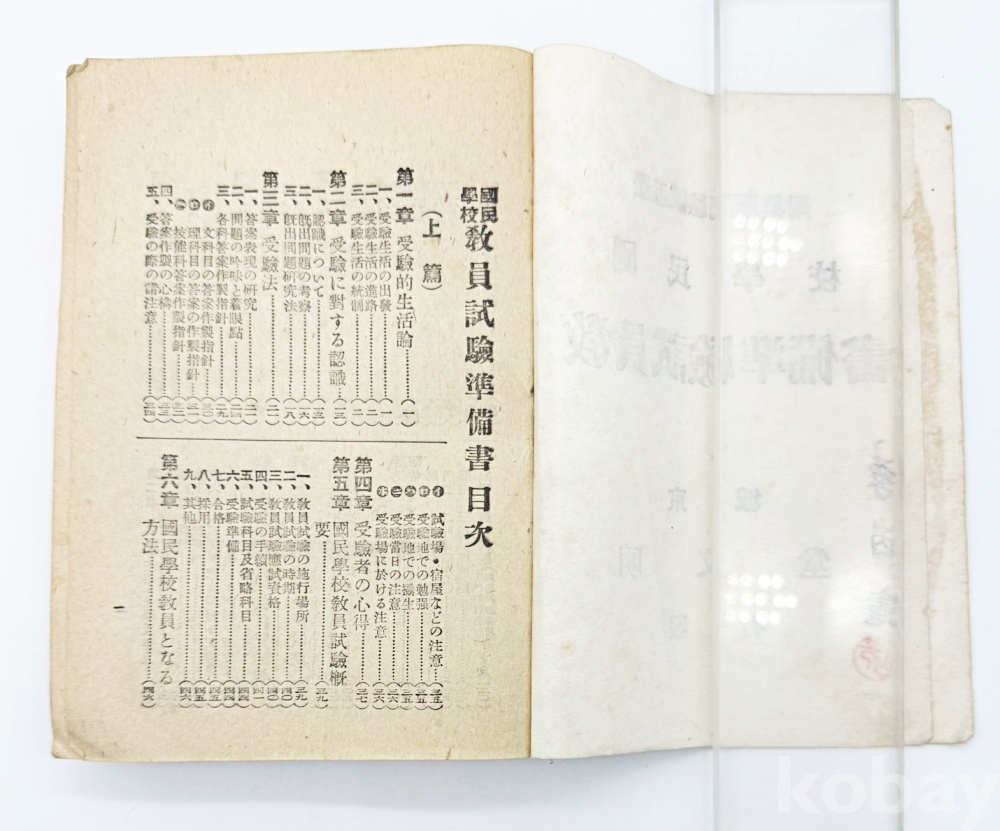 國民學校教員試驗準備書目次
(上篇)
第一章 受驗的生活論…………(一)
一、受驗生活の出發…………(一)
二、受驗生活の進路…………(二)
三、受驗生活の統制…………(二)
第二章 受驗に對する認識…(一三)
一、認識について…………(一五)
二、既出問題の考察…………(一六)
三、既出問題研究法…………(一八)
第三章 受驗法…………(二一)
一、答案表現の研究…………(二一)
二、問題の吟味と着眼點…………(二四)
三、各科答案作製指針…………(二九)
(イ) 文科目の答案作製指針…(三〇)
(ロ) 理科目の答案の作製指針…(三一)
(ハ) 技能科答案作製指針…(三二)
四、答案作製の心構…………(三三)
五、受驗の際の需注意…………(三四)
(イ) 試驗場・宿屋などの注意…(三五)
(ロ) 受驗地での勉强…………(三五)
(ハ) 受驗地での攝生…………(三五)
(ニ) 受驗當日の注意…………(三六)
(ホ) 受驗場に於ける注意…………(三六)
第四章 受驗者の心得…………(三七)
第五章 國民學校教員試驗概
要…………(三九)
一、教員試驗の施行場所…………(三九)
二、教員試驗の時期…………(四〇)
三、教員試驗應試資格…………(四〇)
四、受驗の手續…………(四一)
五、試驗科目及省略科目…………(四四)
六、受驗準備…………(四四)
七、合格…………(四五)
八、採用…………(四五)
九、其他…………(四六)
第六章 國民學校教員となる
方法…………(四六)
一
kobay